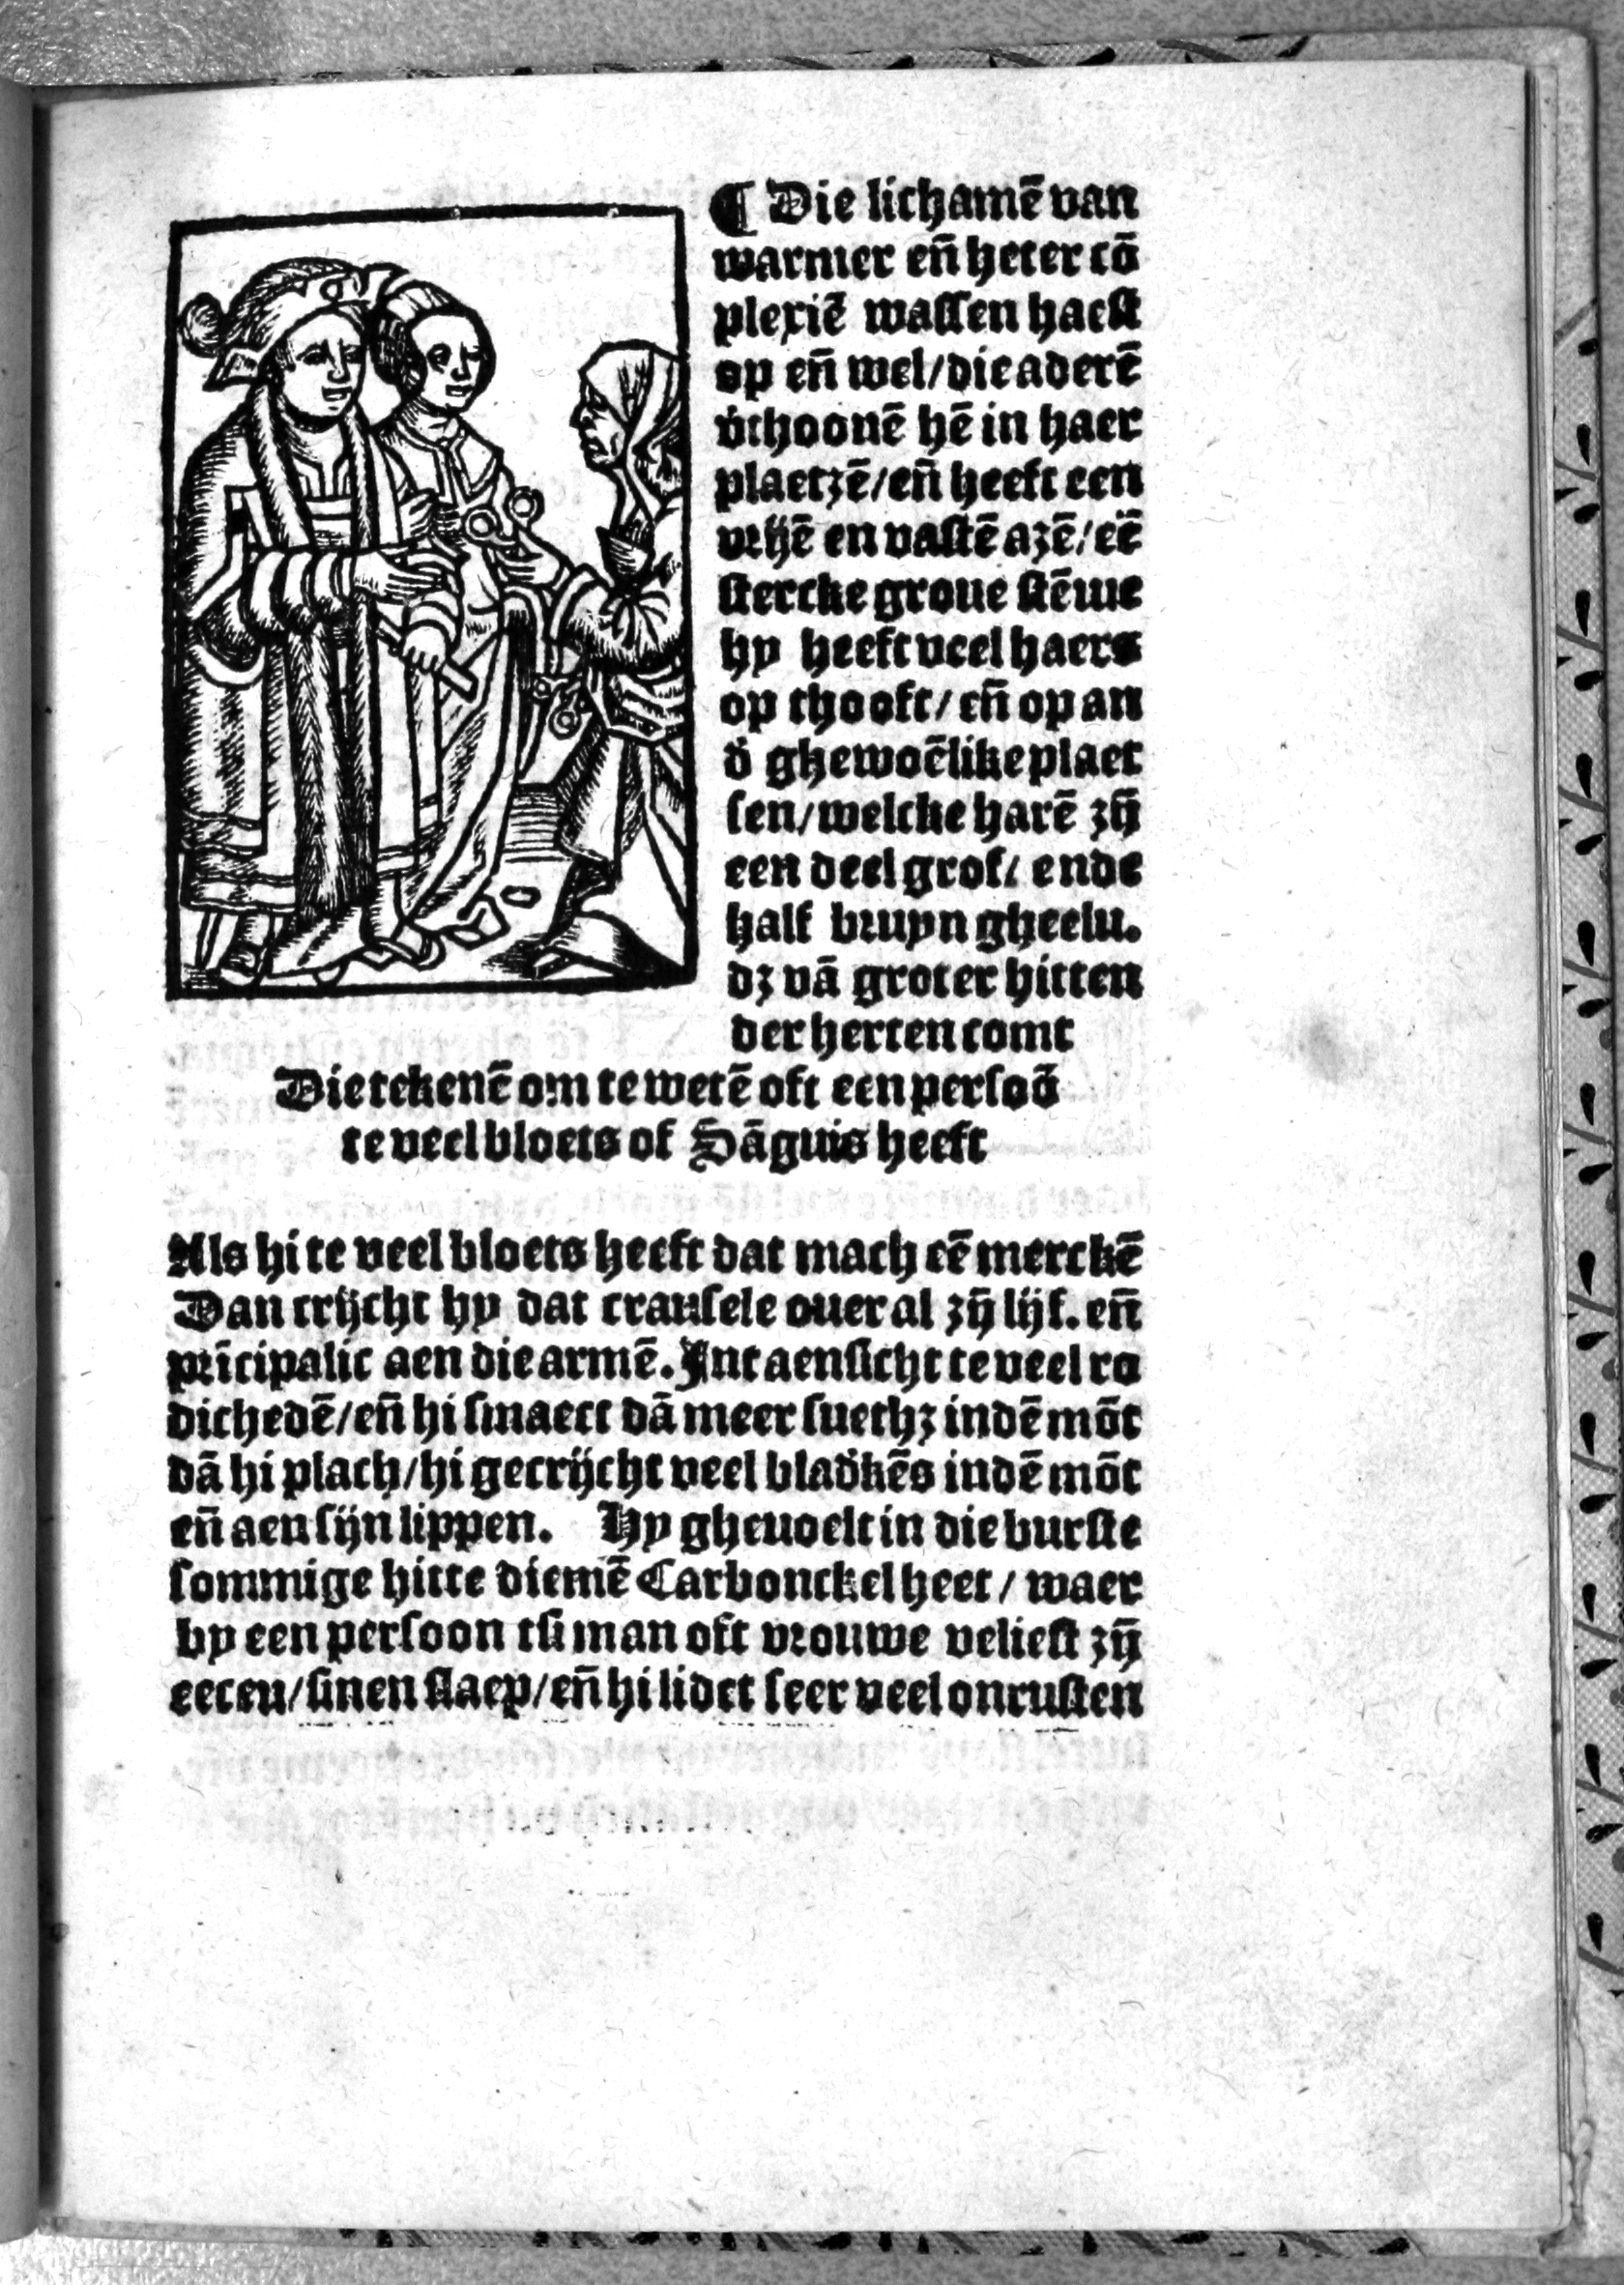 ¶ Die lichamē van
warmer eñ heter cō
plexiē wassen haest
op eñ wel/die aderē
v̓thoonē hē in haer
plaetzē/eñ heeft een
vrijē en vastē azē/eē
stercke groue stēwe
hy heeft veel haers
op thooft/eñ op an
d̓ ghewoēlike plaet
sen/welcke harē zȳ
een deel grof/ ende
half bruyn gheelu.
dz vā groter hitten
der herten comt
Die tekenē om te wetē oft een persoō
te veel bloets of Sāguis heeft
Als hi te veel bloets heeft dat mach cē merckē
Dan crijcht hy dat crausele ouer al zȳ lijf. eñ
prīcipalic aen die armē. Int aensicht te veel ro
dichedē/eñ hi smaect dā meer suethz indē mōt
dā hi plach/hi gecrijcht veel blad̓kēs indē mōt
eñ aen sijn lippen. Hy gheuoelt in die burste
sommige hitte diemē Carbonckel heet/ waer
by een persoon tsi man oft vrouwe veliest zȳ
eeten/sinen slaep/eñ hi lidet seer veel onrusten